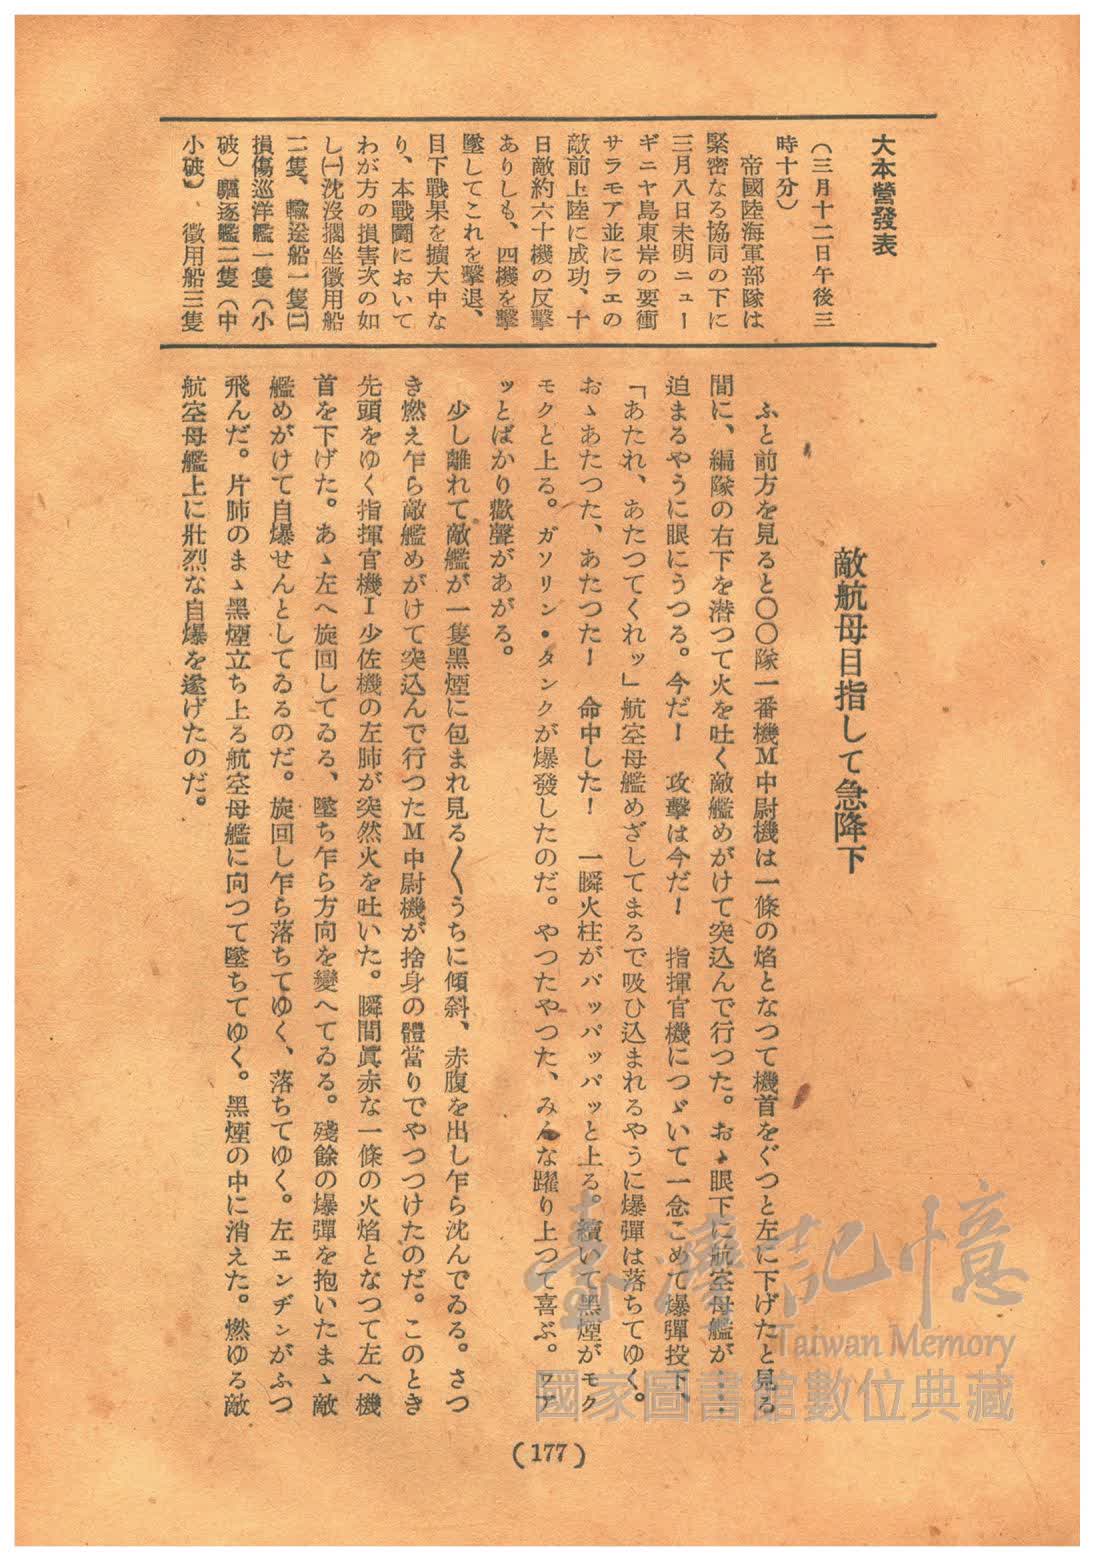 大本營發表
（三月十二日午後三
時十分）
帝國陸海軍部隊は
緊密なる協同の下に
三月八日未明ニュー
ギニヤ島東岸の要衝
サラモア並にラエの
敵前上陸に成功、十
日敵約六十機の反擊
ありしも、四機を擊
墜してこれを擊退、
目下戰果を擴大中な
り、本戰鬪において
わが方の損害次の如
し㈠沈沒擱坐徵用船
二隻、輸送船一隻㈡
損傷巡洋艦一隻（小
破）驅逐艦二隻（中
小破）　徵用船三隻
敵航母目指して急降下
ふと前方を見ると〇〇隊一番機M中尉機は一條の焰となつて機首をぐつと左に下げたと見る
間に、編隊の右下を潜つて火を吐く敵艦めがけて突込んで行つた。おゝ眼下に航空母艦が……
迫まるやうに眼にうつる。今だ！　攻擊は今だ！　指揮官機につゞいて一念こめて爆彈投下、
「あたれ、あたつてくれッ」航空母艦めざしてまるで吸ひ込まれるやうに爆彈は落ちてゆく。
おゝあたつた、あたつた！　命中した！　一瞬火柱がパッパッパッと上る。續いて黑煙がモク
モクと上る。ガソリン・タンクが爆發したのだ。やつたやつた、みんな躍り上つて喜ぶ。ワア
ッとばかり歡聲があがる。
少し離れて敵艦が一隻黑煙に包まれ見る〳〵うちに傾斜、赤腹を出し乍ら沈んでゐる。さつ
き燃え乍ら敵艦めがけて突込んで行つたM中尉機が捨身の體當りでやつつけたのだ。このとき
先頭をゆく指揮官機I少佐機の左肺が突然火を吐いた。瞬間眞赤な一條の火焰となつて左へ機
首を下げた。あゝ左へ旋回してゐる、墜ち乍ら方向を變へてゐる。殘餘の爆彈を抱いたまゝ敵
艦めがけて自爆せんとしてゐるのだ。旋回し乍ら落ちてゆく、落ちてゆく。左エンヂンがふつ
飛んだ。片肺のまゝ黑煙立ち上る航空母艦に向つて墜ちてゆく。黑煙の中に消えた。燃ゆる敵
航空母艦上に壯烈な自爆を遂げたのだ。
(177)
臺灣記憶
Taiwan Memory
國家圖書館數位典藏